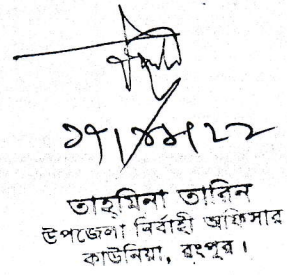 তাহমিনা তারিন
উপজেলা নির্বাহী অফিসার
কাউনিয়া, রংপুর।